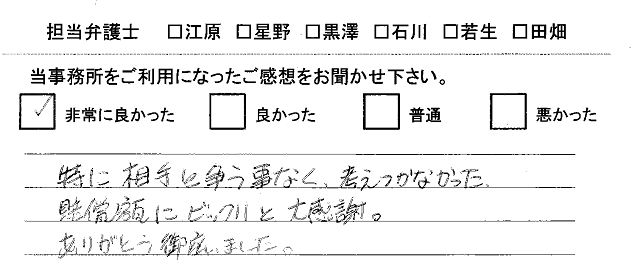 担当弁護士 □江原 □星野 □黒澤 □石川 □若生 □田畑
当事務所をご利用になったご感想をお聞かせ下さい。
☑ 非常に良かった □ 良かった □ 普通 □ 悪かった
特に相手と争う事なく、考えつかなかった、
賠償額にビックリと大感謝。
ありがとう御座いました。